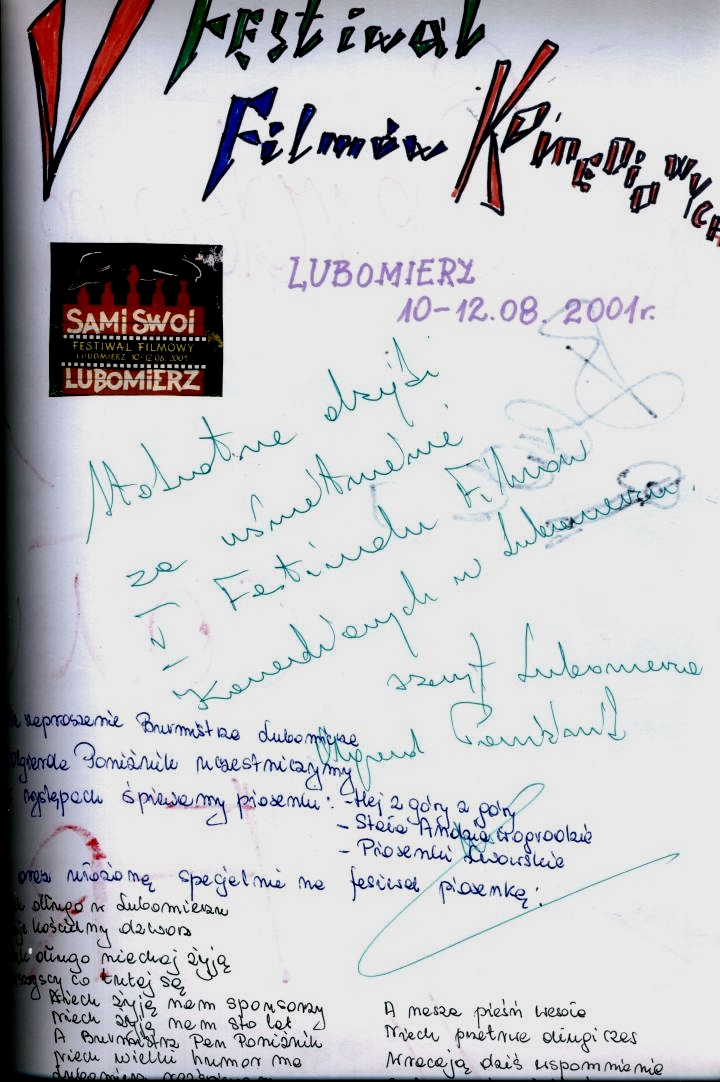 V Festiwal
Filmów Komediowych
LUBOMIERZ
10-12.08. 2001r.
SAMI SWOI
FESTIWAL FILMOWY
LUBOMIERZ 10-12.08.2001
LUBOMIERZ
za uświetnienie
V Festiwalu Filmów
Komediowych w Lubomierzu.
szeryf Lubomierza
zaproszenie Burmistrza Lubomierza
Poniźnik uczestniczymy
występach śpiewamy piosenki: - Hej z góry z góry
- Stała Andzia w ogrodzie
- Piosenki Lwowskie
oraz ułożoną specjalnie na festiwal piosenkę:
długo w Lubomierzu
kościelny dzwon
długo niechaj żyją
wszyscy co tutaj są
Niech żyją nam sponsorzy
Niech żyją nam sto lat
A Burmistrz Pan Poniźnik
niech wielki humor ma
A nasza pieśń wesoła
Niech przetrwa długi czas
Wracają dziś wspomnienia